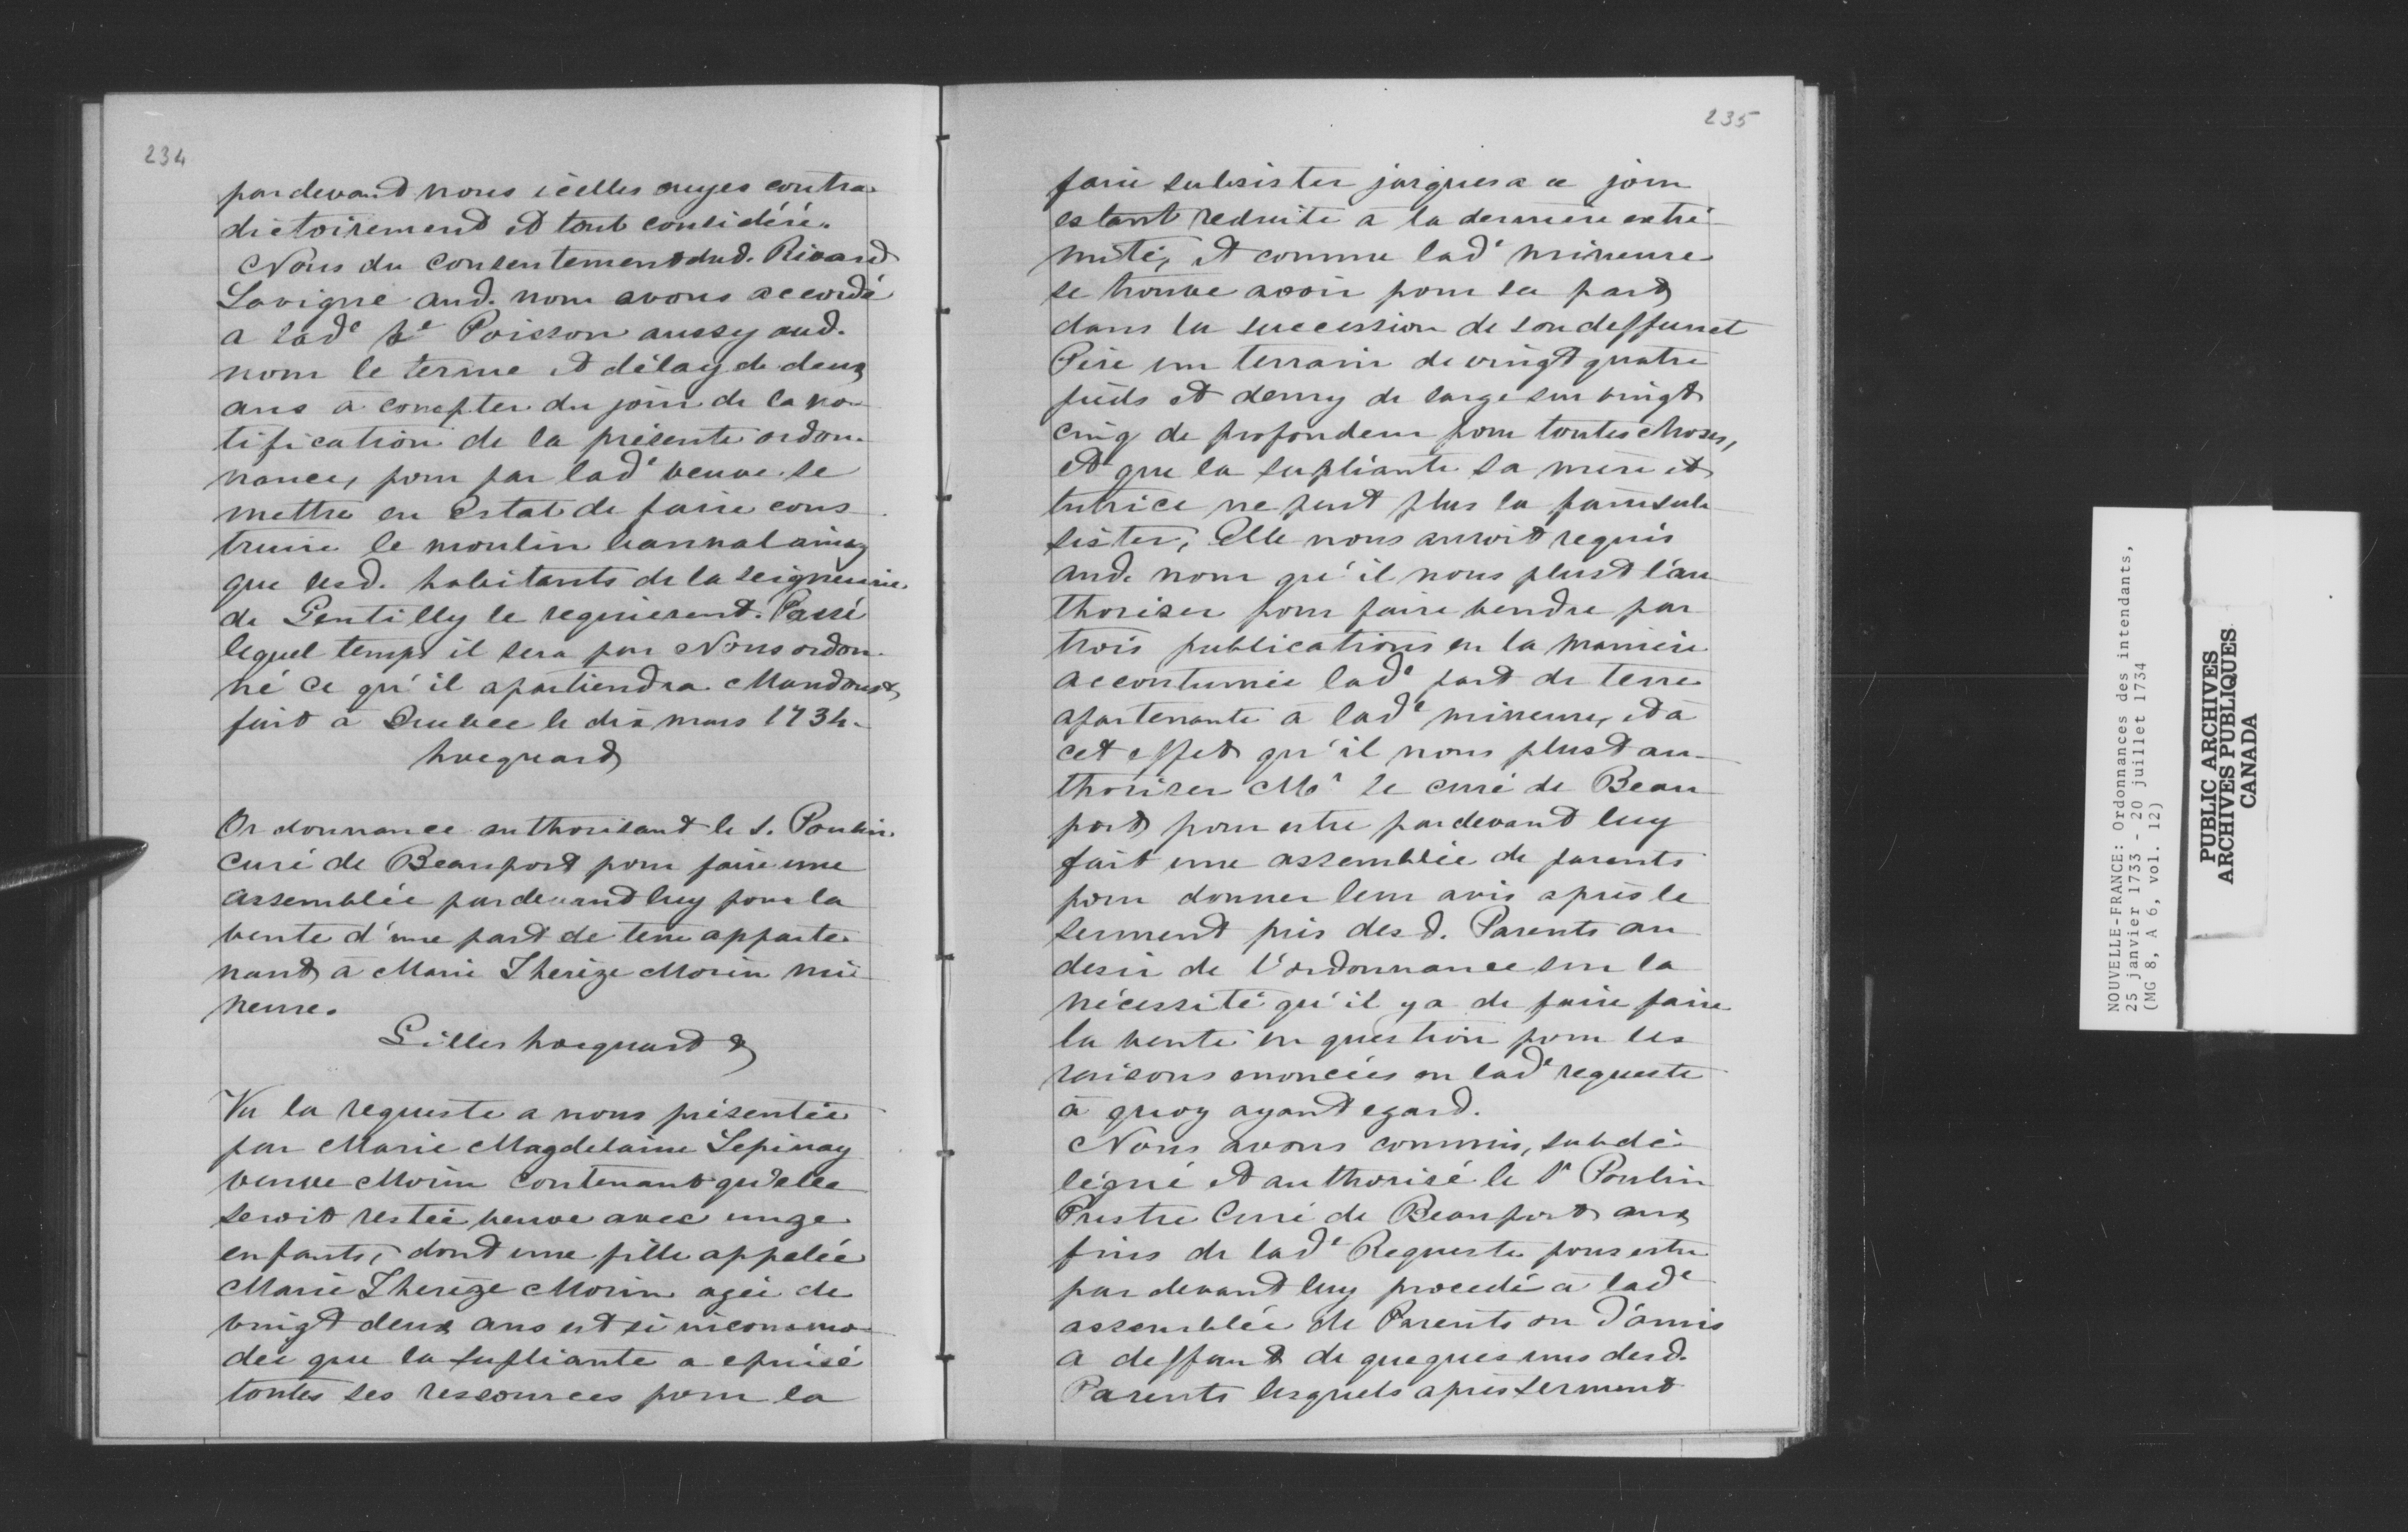 234
pardevant nous icelles ouyes contra-
dictoirement et tout considéré.
Nous du consentement dud. Rivard
Lavigne aud. nom avons accordé
a lade. ve Poisson aussy aud.
nom le terme et délay de deux
ans a compter du jour de la no-
tification de la présente ordon-
nance, pour par lade veuve se
mettre en estat de faire cons
truire le moulin bannal ainsy
que lesd. habitants de la seigneurie
de Gentilly le requierent. Passé
lequel temps il sera par Nous ordon-
né ce qu'il apartiendra. Mandons &
fait à Quebec le dix mars 1734.
hocquard
Ordonnance authorisant le s. Poulin
curé de Beauport pour faire une
assemblée pardevant luy pour la
vente d'une part de terre apparte-
nant à Marie Therèze Morin mi-
neure.
Gilles hocquard &
Vu la requeste a nous présentée
par Marie Magdelaine Lepinay
veuve Morin contenant qu'elle
seroit restée veuve avec unze
enfants, dont une fille appelée
Marie Therèze Morin agée de
vingt deux ans est si incommo-
dée que la supliante a epuisé
toutes ses ressources pour la
235
faire subsister jusques a ce jour
estant reduite à la dernière extré-
mité, et comme lade mineure
se trouve avoir pour sa part
dans la succession de son deffunct
Père un terrain de vingt quatre
pieds et demy de large sur vingt
cinq de profondeur pour toutes choses,
et que la supliante sa mere et
tutrice ne peut plus la faire sub
sister, Elle nous auroit requis
aud. nom qu'il nous plust l'au
thoriser pour faire vendre par
trois publications en la manière
accoutumée lade part de terre
apartenante à lade mineure, et à
cet effet qu'il nous plust au-
thoriser Mr le curé de Beau
port pour estre pardevant luy
fait une assemblée de parents
pour donner leur avis après le
serment pris desd. Parents au
desir de l'ordonnance sur la
nécessité qu'il y a de faire faire
la vente en question pour les
raisons enoncées en lade requeste
à quoy ayant egard.
Nous avons commis, subdé-
légué et authorisé le Sr Poulin
Prestre Curé de Beauport aux
fins de lade Requeste pour estre
pardevant luy procedé à lade
assemblée de Parents ou d'amis
a deffaut de queques uns desd.
Parents lesquels après serment
NOUVELLE-FRANCE: Ordonnances des intendants,
25 janvier 1733 - 20 juillet 1734
(MG 8, A 6, vol. 12)
PUBLIC ARCHIVES
ARCHIVES PUBLIQUES
CANADA